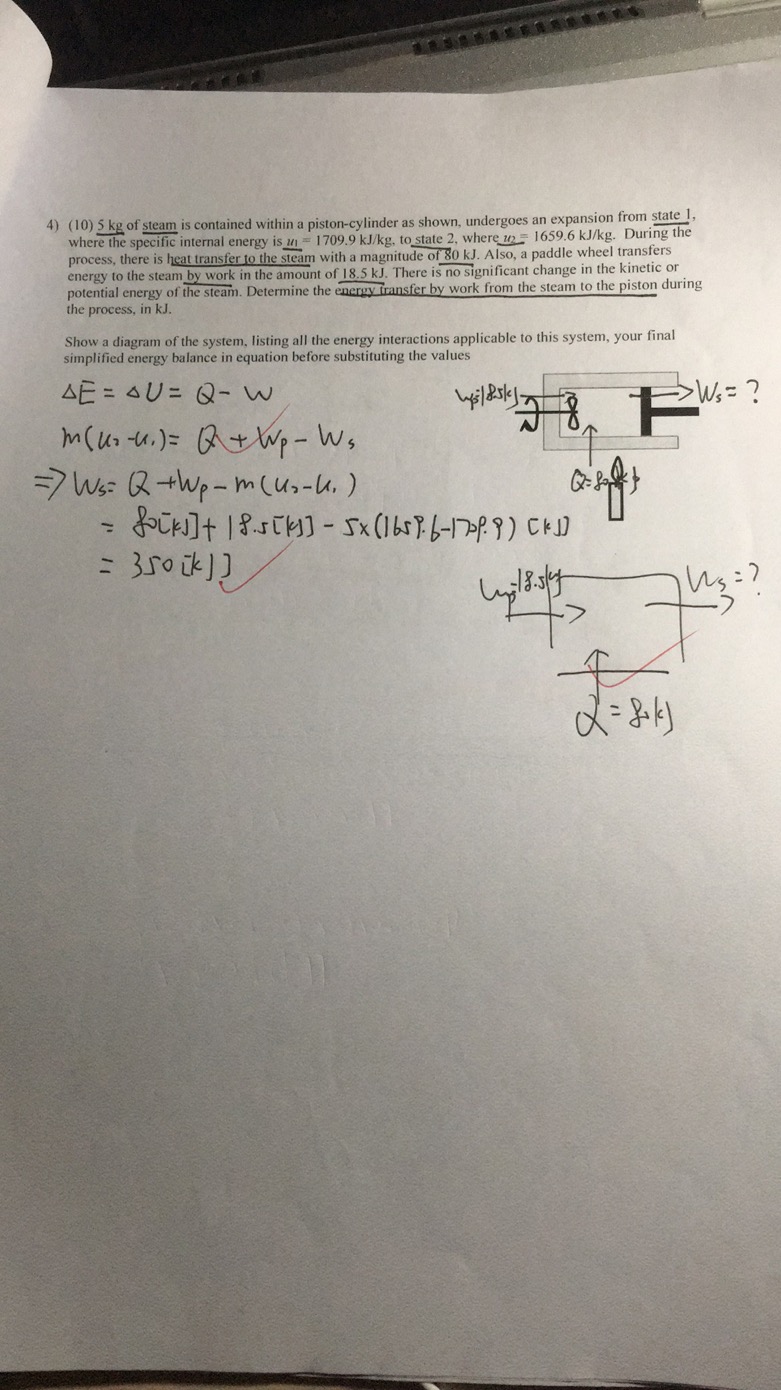 4) (10) 5 kg of steam is contained within a piston-cylinder as shown, undergoes an expansion from state 1,
where the specific internal energy is u₁ = 1709.9 kJ/kg, to state 2, where u₂ = 1659.6 kJ/kg. During the
process, there is heat transfer to the steam with a magnitude of 80 kJ. Also, a paddle wheel transfers
energy to the steam by work in the amount of 18.5 kJ. There is no significant change in the kinetic or
potential energy of the steam. Determine the energy transfer by work from the steam to the piston during
the process, in kJ.
Show a diagram of the system, listing all the energy interactions applicable to this system, your final
simplified energy balance in equation before substituting the values
ΔE = ΔU = Q - W
m(u₂-u₁) = Q + Wp - Ws
=> Ws = Q + Wp - m(u₂-u₁)
= 80[kJ] + 18.5[kJ] - 5×(1659.6-1709.9) [kJ]
= 350[kJ]
Wp=18.5kJ
Ws = ?
Q=80kJ
Wp=18.5kJ
Ws = ?
Q = 80kJ